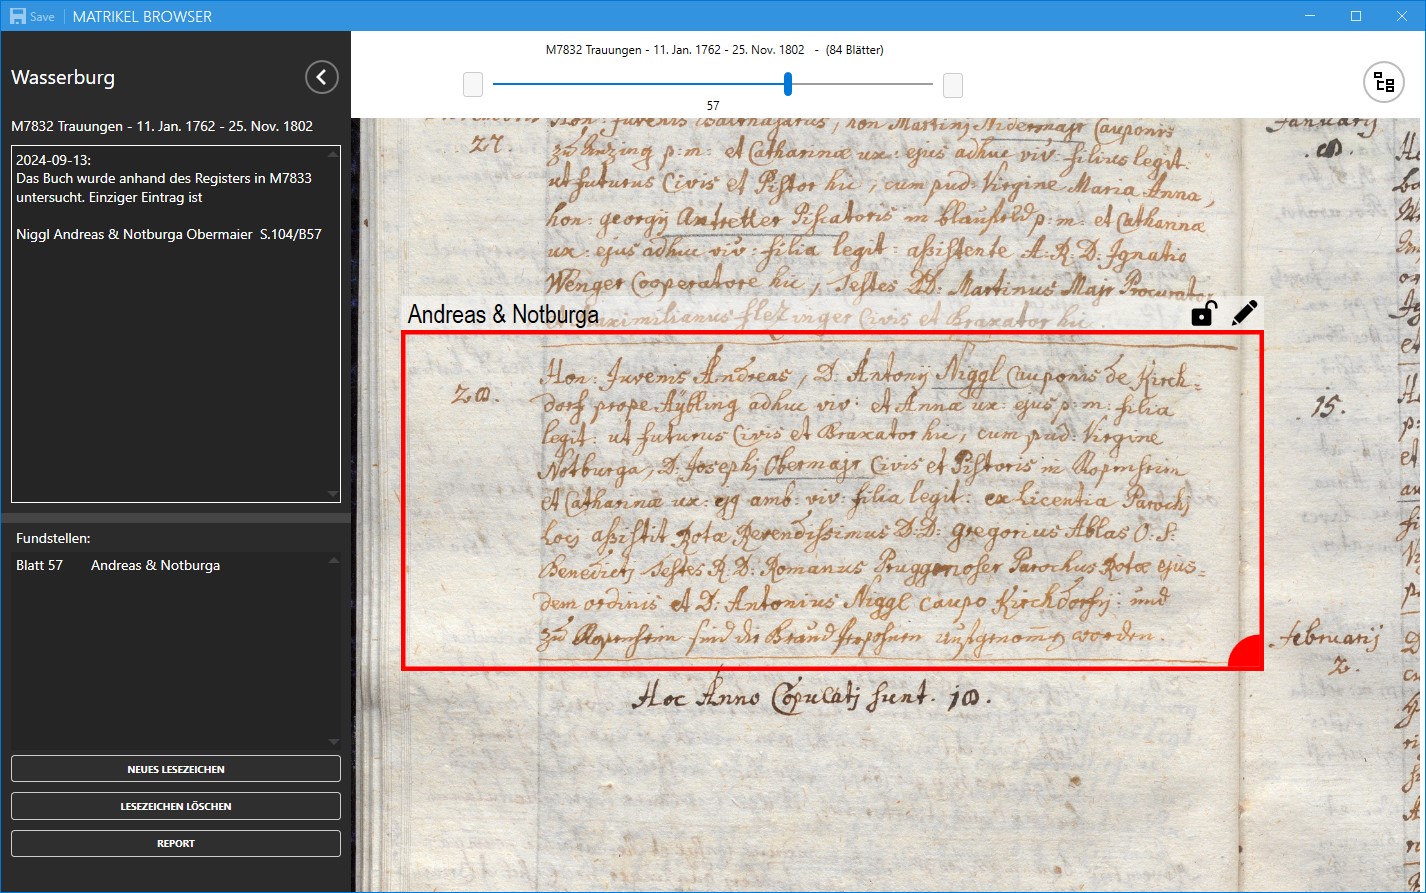 Save
MATRIKEL BROWSER
Wasserburg
M7832 Trauungen - 11. Jan. 1762 - 25. Nov. 1802
2024-09-13:
Das Buch wurde anhand des Registers in M7833
untersucht. Einziger Eintrag ist
Niggl Andreas & Notburga Obermaier S.104/B57
Fundstellen:
Blatt 57 Andreas & Notburga
NEUES LESEZEICHEN
LESEZEICHEN LÖSCHEN
REPORT
M7832 Trauungen - 11. Jan. 1762 - 25. Nov. 1802 - (84 Blätter)
57
27.
p: m: et Catharinæ ux: ejus adhuc viv: filius legit:
ut futurus Civis et Pistor hic, cum pud: Virgine Maria Anna,
hon: georgij Antretter Piscatoris in p: m: et Catharinæ
ux: ejus adhuc viv: filia legit: assistente A. R. D. Ignatio
Wenger Cooperatore hic, Testes DD: Martinus Mayr Procurator
et Maximilianus flezinger Civis et Braxator hic.
Andreas & Notburga
28.
Hon: Juvenis Andreas, D: Antonij Niggl Cauponis de Kirch=
dorf prope Aÿbling adhuc viv: et Annæ ux: ejus p: m: filia
legit: ut futurus Civis et Braxator hic, cum pud: Virgine
Notburga, D. Josephj Obermajr Civis et Pistoris in Rosenheim
et Catharinæ ux: ejq amb: viv: filia legit: ex Licentia Parochj
Locj assistit Rotæ Reverendissimus D: D: gregorius Ablas O: S:
Benedictj Testes R: D: Romanus Pruggmoser Parochus Rotæ ejus=
dem ordinis et D: Antonius Niggl caupo Kirchdorfij: und
zu Rosenheim sind die worden.
Hoc Anno Copulatj sunt. 18.
Januarij
8.
15.
februarij
2.